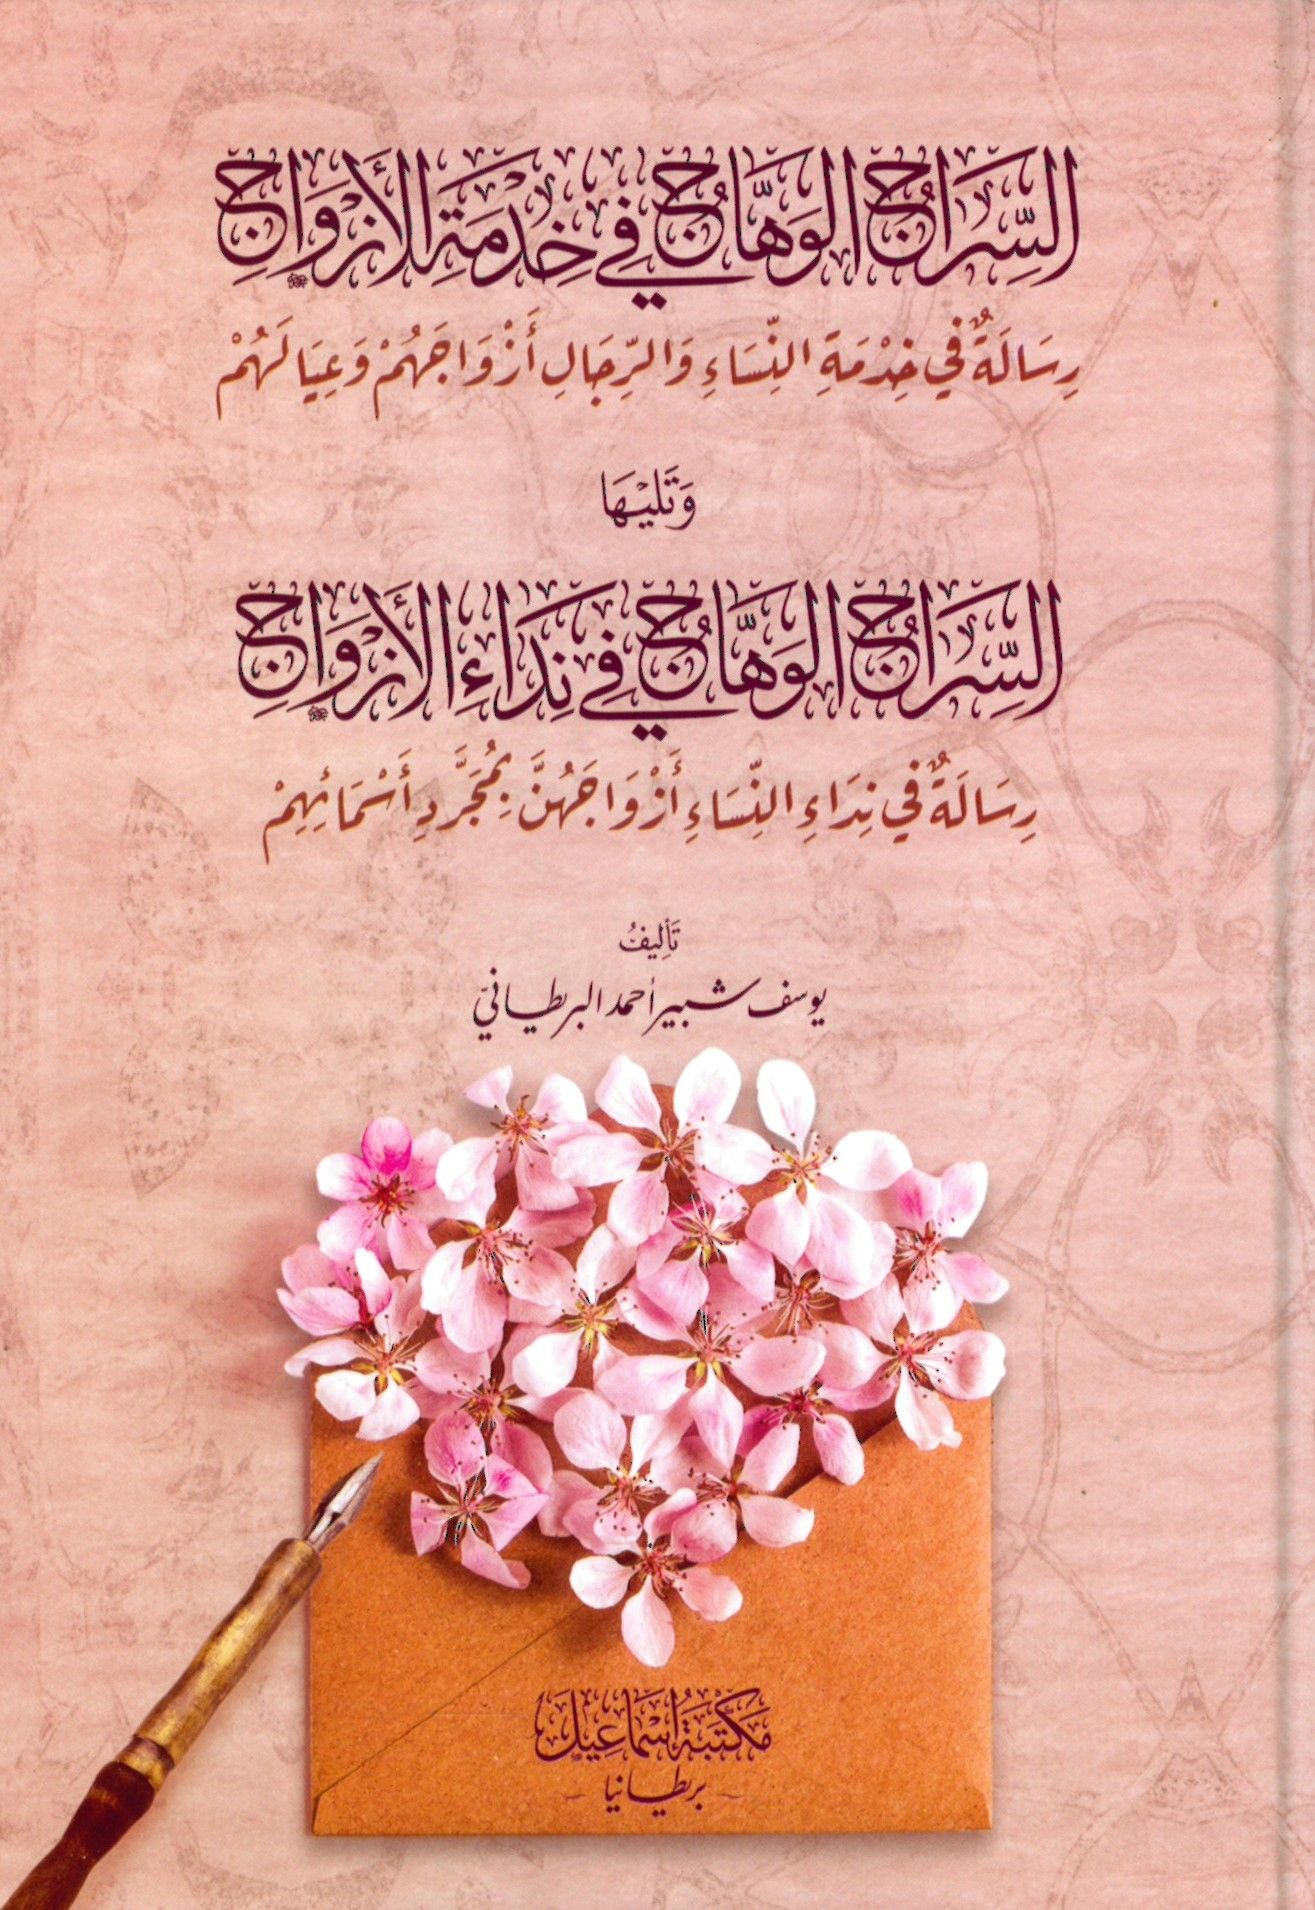 السِّرَاجُ الوَهَّاجُ فِي خِدْمَةِ الأَزْوَاجِ
رِسَالَةٌ فِي خِدْمَةِ النِّسَاءِ وَالرِّجَالِ أَزْوَاجَهُمْ وَعِيَالَهُمْ
وَتَلِيْهَا
السِّرَاجُ الوَهَّاجُ فِي نِدَاءِ الأَزْوَاجِ
رِسَالَةٌ فِي نِدَاءِ النِّسَاءِ أَزْوَاجَهُنَّ بِمُجَرَّدِ أَسْمَائِهِمْ
تَأْلِيفُ
يوسف شبير أحمد البريطانيّ
مَكْتَبَةُ اسْمَاعِيْل
بريطانيا